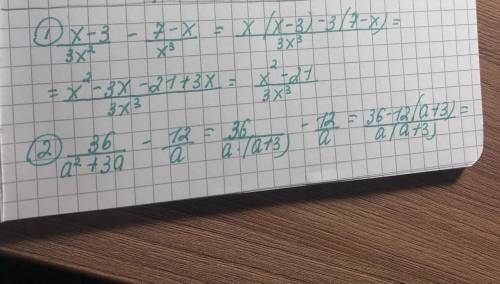 ① (x-3)/(3x²) - (7-x)/(x³) = (x(x-3)-3(7-x))/(3x³) =
= (x²-3x-21+3x)/(3x³) = (x²-21)/(3x³)
② 36/(a²+3a) - 12/a = 36/(a·(a+3)) - 12/a = (36-12(a+3))/(a(a+3)) =